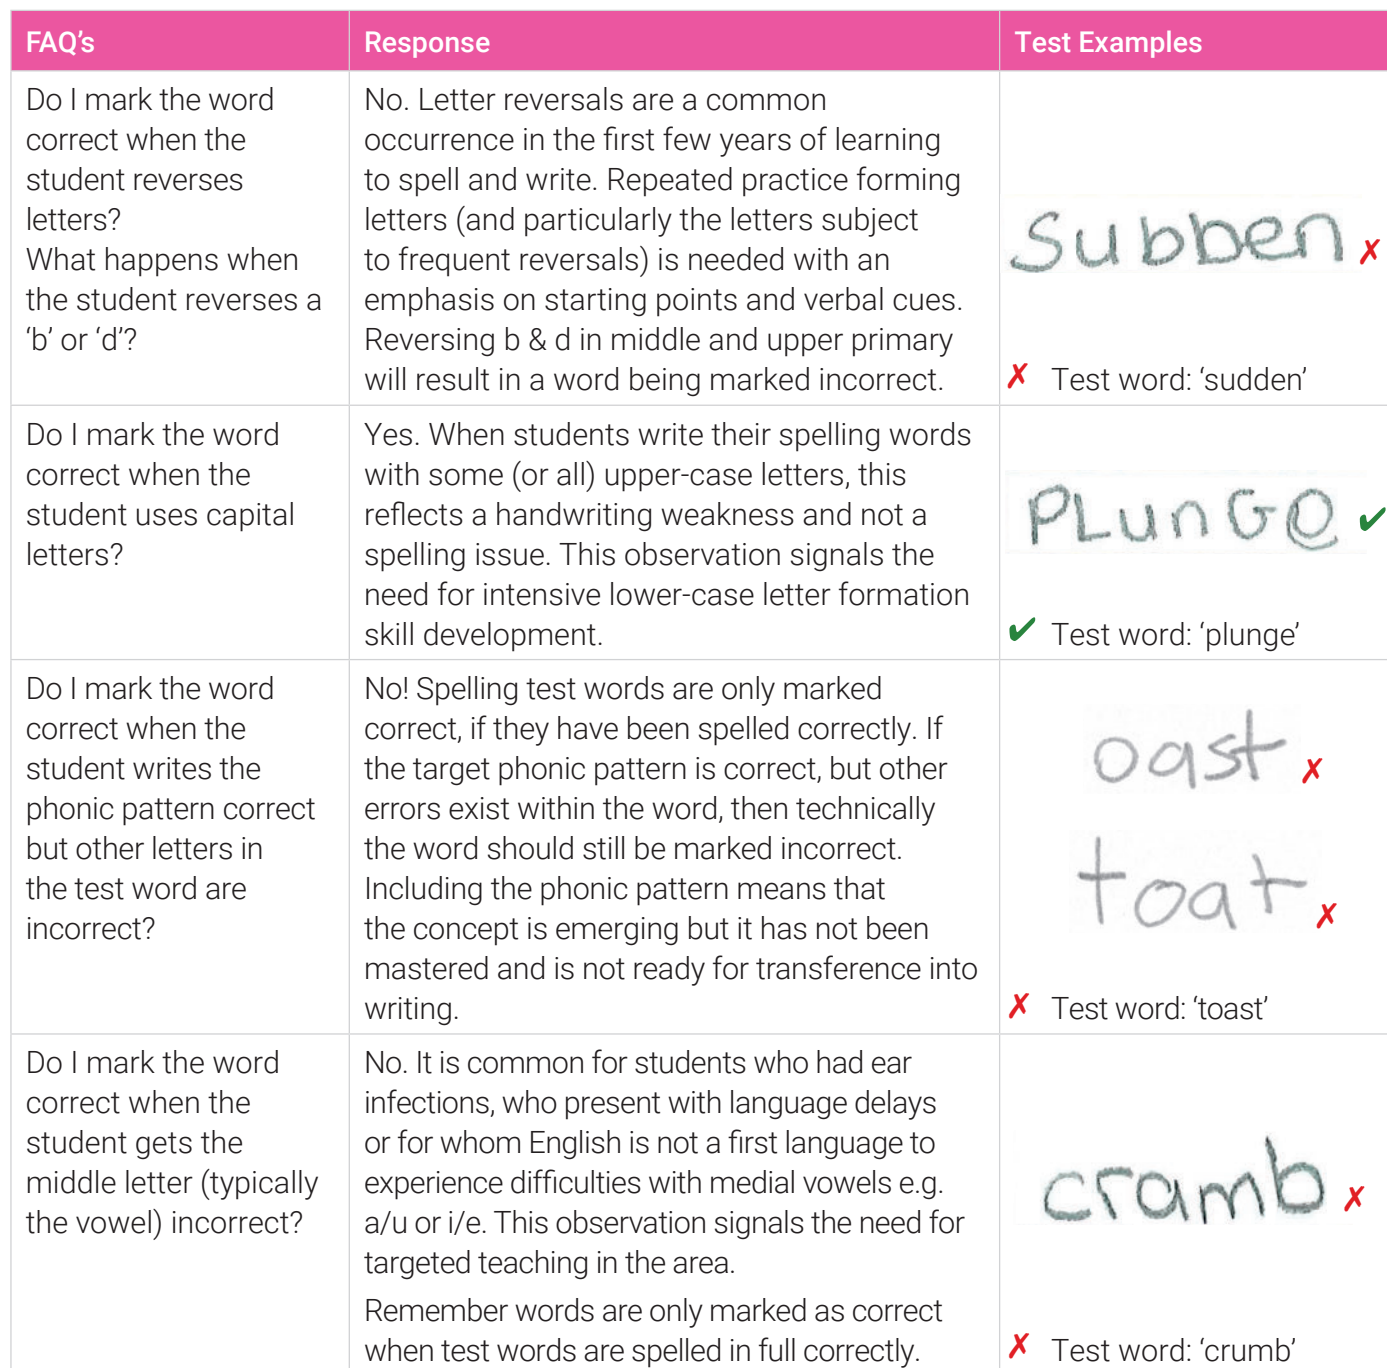 FAQ's Response Test Examples
Do I mark the word
correct when the
student reverses
letters?
What happens when
the student reverses a
‘b’ or ‘d’?
No. Letter reversals are a common
occurrence in the first few years of learning
to spell and write. Repeated practice forming
letters (and particularly the letters subject
to frequent reversals) is needed with an
emphasis on starting points and verbal cues.
Reversing b & d in middle and upper primary
will result in a word being marked incorrect.
Subben ✗
✗ Test word: ‘sudden’
Do I mark the word
correct when the
student uses capital
letters?
Yes. When students write their spelling words
with some (or all) upper-case letters, this
reflects a handwriting weakness and not a
spelling issue. This observation signals the
need for intensive lower-case letter formation
skill development.
PLunGe ✔
✔ Test word: ‘plunge’
Do I mark the word
correct when the
student writes the
phonic pattern correct
but other letters in
the test word are
incorrect?
No! Spelling test words are only marked
correct, if they have been spelled correctly. If
the target phonic pattern is correct, but other
errors exist within the word, then technically
the word should still be marked incorrect.
Including the phonic pattern means that
the concept is emerging but it has not been
mastered and is not ready for transference into
writing.
oast ✗
toat ✗
✗ Test word: ‘toast’
Do I mark the word
correct when the
student gets the
middle letter (typically
the vowel) incorrect?
No. It is common for students who had ear
infections, who present with language delays
or for whom English is not a first language to
experience difficulties with medial vowels e.g.
a/u or i/e. This observation signals the need for
targeted teaching in the area.
Remember words are only marked as correct
when test words are spelled in full correctly.
cramb ✗
✗ Test word: ‘crumb’